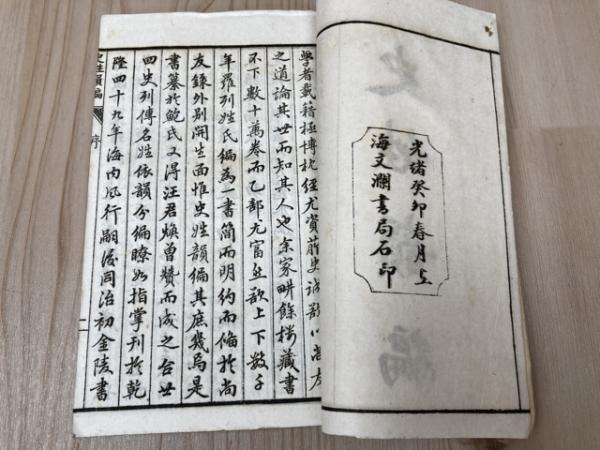 光緒癸卯春月上
海文瀾書局石印
學者載籍極博枕經尤資葄史誦數以尚友
之道論其世而知其人也余家畊餘樓藏書
不下數十萬卷而乙部尤富至欲上下數千
年羅列姓氏編為一書簡而明約而備於尚
友錄外別開生面惟史姓韻編其庶幾焉是
書纂於鮑氏又得汪君煥曾贊而成之合廿
四史列傳名姓依韻分編瞭如指掌刊於乾
隆四十九年海內風行嗣後同治初金陵書
史姓韻編
序
二